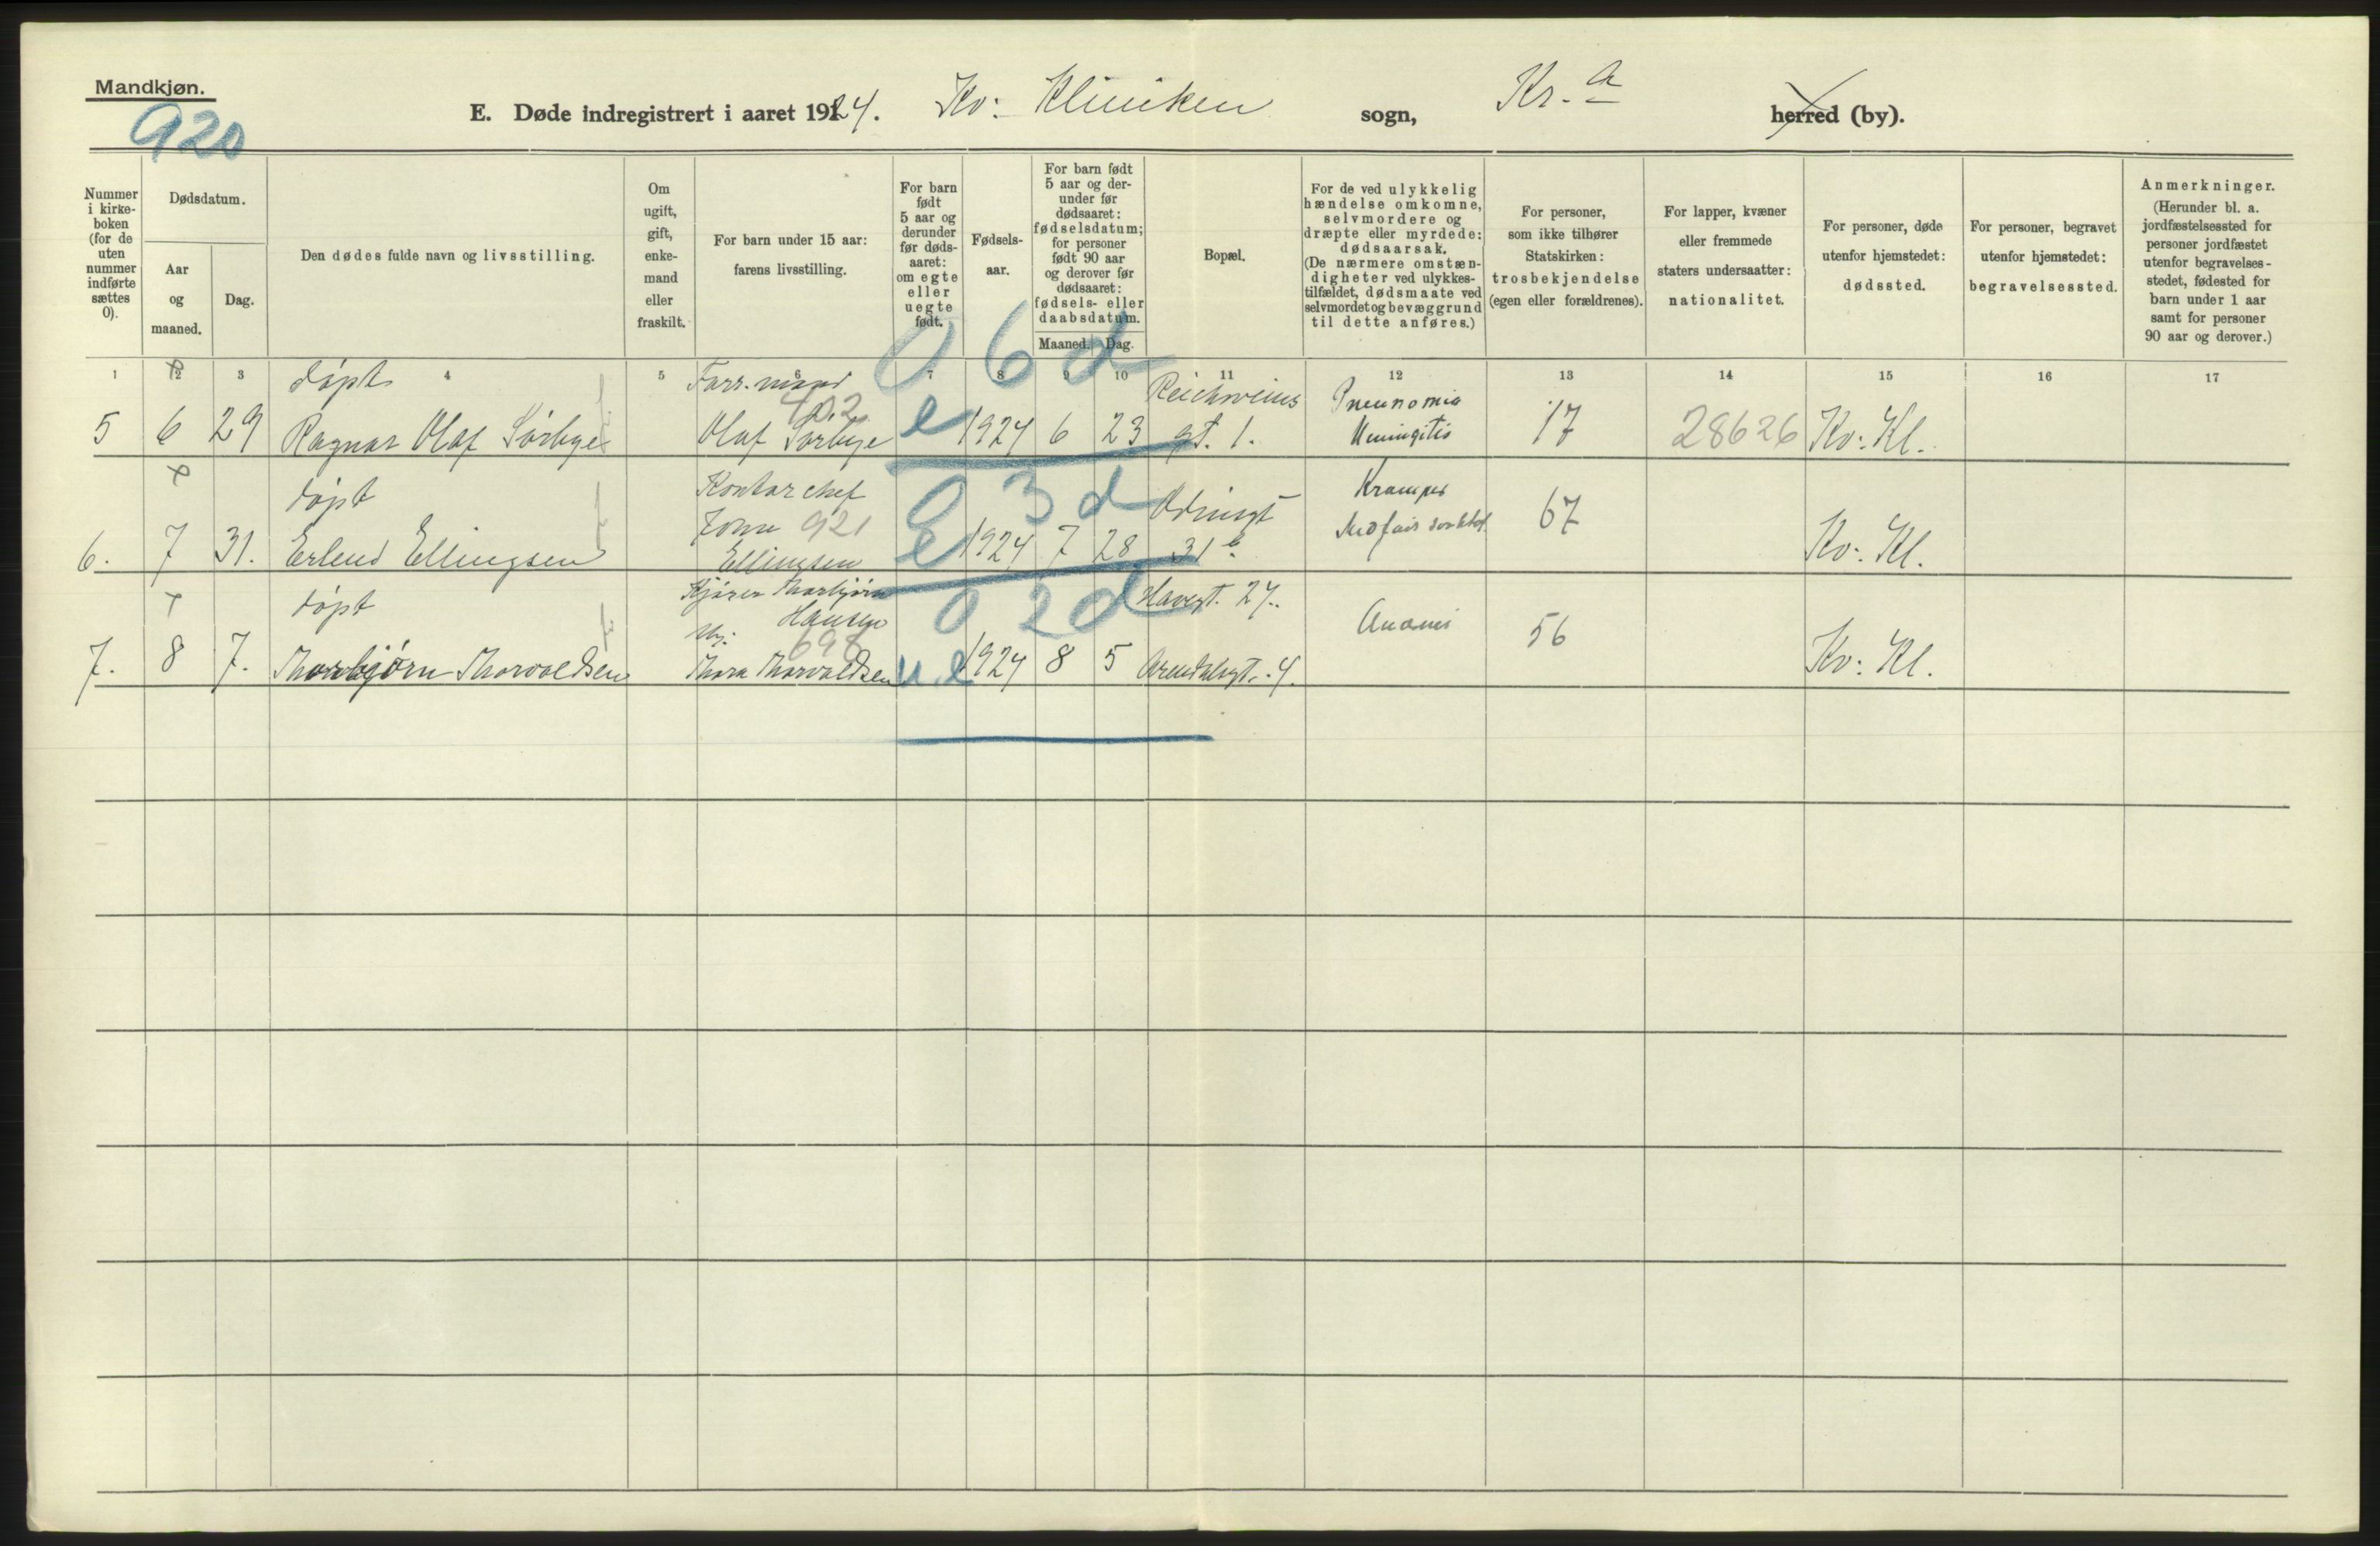 Mandkjøn.
920
E. Døde indregistrert i aaret 1924. Kv: Kliniken sogn, Kr.a herred (by).
Nummer i kirke-boken (for de uten nummer indførte sættes 0).
Dødsdatum.
Aar og maaned.
Dag.
Den dødes fulde navn og livsstilling.
Om ugift, gift, enke-mand eller fraskilt.
For barn under 15 aar: farens livsstilling.
For barn født 5 aar og derunder før døds-aaret: om egte eller uegte født.
Fødsels-aar.
For barn født 5 aar og der-under før dødsaaret: fødselsdatum; for personer født 90 aar og derover før dødsaaret: fødsels- eller daabsdatum.
Maaned. Dag.
Bopæl.
For de ved ulykkelig hændelse omkomne, selvmordere og dræpte eller myrdede: dødsaarsak. (De nærmere omstæn-digheter ved ulykkes-tilfældet, dødsmaate ved selvmordet og bevæggrund til dette anføres.)
For personer, som ikke tilhører Statskirken: trosbekjendelse (egen eller forældrenes).
For lapper, kvæner eller fremmede staters undersaatter: nationalitet.
For personer, døde utenfor hjemstedet: dødssted.
For personer, begravet utenfor hjemstedet: begravelsessted.
Anmerkninger. (Herunder bl. a. jordfæstelsessted for personer jordfæstet utenfor begravelses-stedet, fødested for barn under 1 aar samt for personer 90 aar og derover.)
1 2 3 4 5 6 7 8 9 10 11 12 13 14 15 16 17
døpt Forr. mand 0 6 d Reichweins Pneunomia
402
5 6 29 Ragnar Olaf Sørbye Olaf Sørbye e 1924 6 23 gt. 1. Meningitis 17 28626 Kv: Kl.
døpt Kontorchef 0 3 d Odinsgt Kramper
921
6. 7 31. Erlend Ellingsen Ellingsen e 1924 7 28 31b 67 Kv: Kl.
døpt Kjører Thorbjørn Hansen 0 2 d Havegt. 27.
698
7. 8 7. Thorbjørn Thorvaldsen Thora Thorvaldsen u.e 1924 8 5 Arendalsgt. 4. Anæmi 56 Kv: Kl.